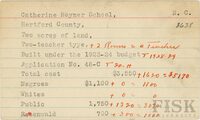 Catherine Hoyner School, N. C.
Hertford County, 3638
Two acres of land.
Two-teacher type, + 2 Rooms - 2 Teachers
Built under the 1923-24 budget
Application No. 48-C
Total cost $3,550 + 1620 = $5170
Negroes $1,100 + 0 = 1100
Whites + 0
Public 1,750 + 1320
Rosenwald 700 + 300
FISK